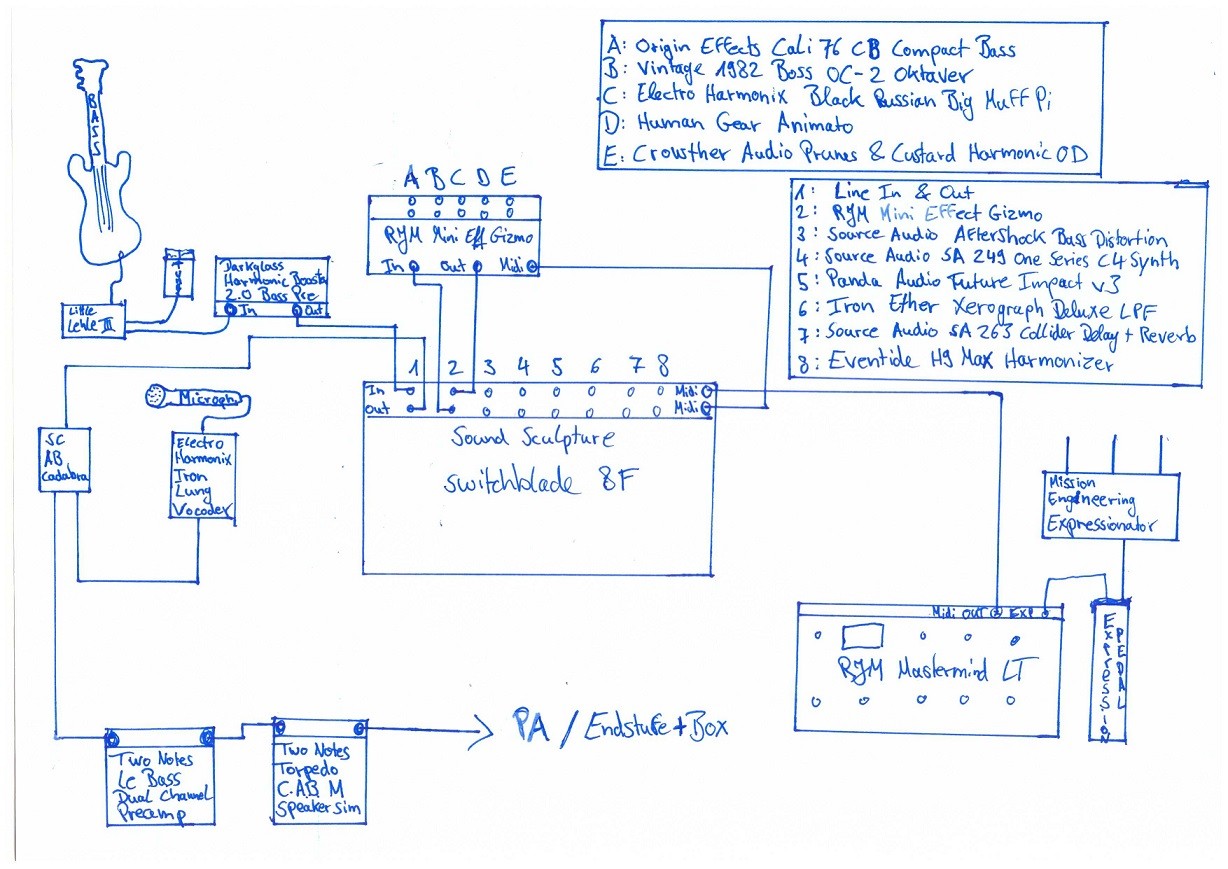 A: Origin Effects Cali 76 CB Compact Bass
B: Vintage 1982 Boss OC-2 Oktaver
C: Electro Harmonix Black Russian Big Muff Pi
D: Human Gear Animato
E: Crowther Audio Prunes & Custard Harmonic OD
1: Line In & Out
2: RJM Mini Effect Gizmo
3: Source Audio Aftershock Bass Distortion
4: Source Audio SA 249 One Series C4 Synth
5: Panda Audio Future Impact v3
6: Iron Ether Xerograph Deluxe LPF
7: Source Audio SA 263 Collider Delay + Reverb
8: Eventide H9 Max Harmonizer
BASS
A B C D E
RJM Mini Eff Gizmo
In Out Midi
Little
Lehle III
Darkglass
Harmonic Booster
2.0 Bass Pre
In Out
1 2 3 4 5 6 7 8
In Midi
Out Midi
Sound Sculpture
Switchblade 8F
Microph
SC
AB
Cadabra
Electro
Harmonix
Iron
Lung
Vocoder
Mission
Engineering
Expressionator
Midi OUT EXP
RJM Mastermind LT
Expression
PEDAL
Two Notes
Le Bass
Dual Channel
Preamp
Two Notes
Torpedo
C.A.B. M
Speaker Sim
PA / Endstufe + Box